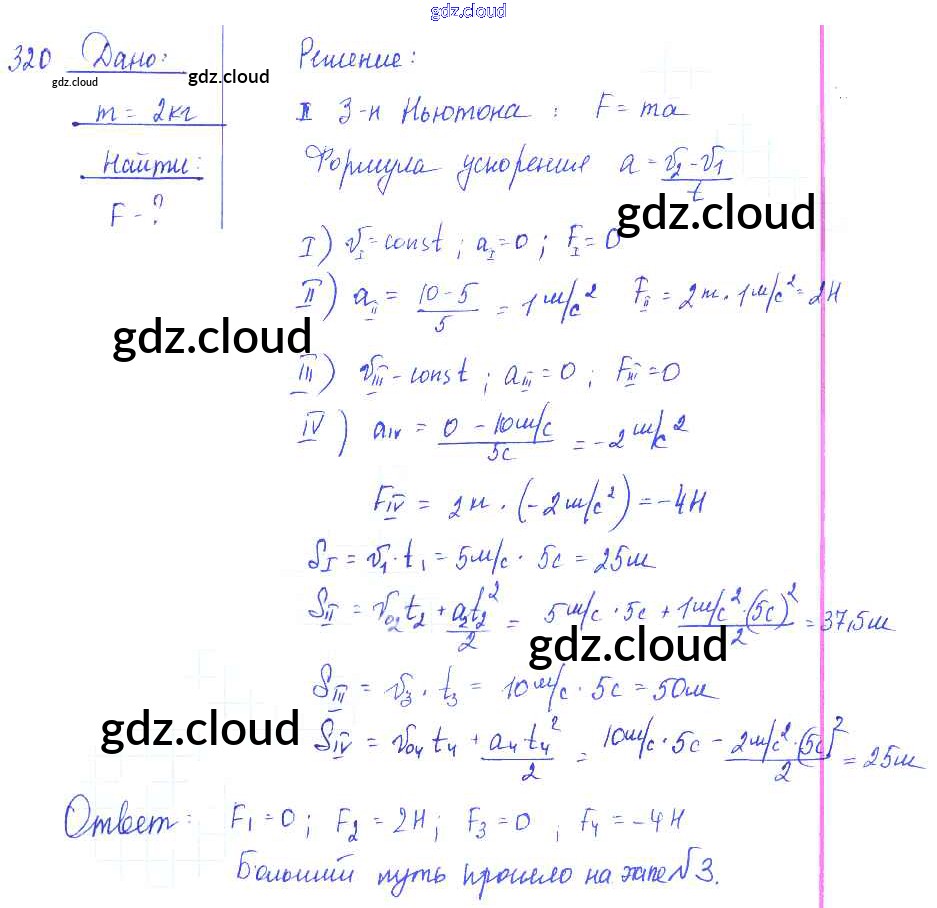 gdz.cloud
320 Дано:
gdz.cloud
gdz.cloud
m = 2кг
Найти:
F - ?
Решение:
II З-н Ньютона : F = ma
Формула ускорения a = (v₂ - v₁)/t
gdz.cloud
I) v_I = const ; a_I = 0 ; F_I = 0
II) a_II = (10 - 5)/5 = 1 м/с² F_II = 2кг · 1м/с² = 2Н
gdz.cloud
III) v_III - const ; a_III = 0 ; F_III = 0
IV) a_IV = (0 - 10м/с)/5с = -2 м/с²
F_IV = 2кг · (-2м/с²) = -4Н
S_I = v₁ · t₁ = 5м/с · 5с = 25м
S_II = v₀₂t₂ + a₂t₂²/2 = 5м/с · 5с + 1м/с² · (5с)²/2 = 37,5м
gdz.cloud
S_III = v₃ · t₃ = 10м/с · 5с = 50м
gdz.cloud
S_IV = v₀₄t₄ + a₄t₄²/2 = 10м/с · 5с - 2м/с² · (5с)²/2 = 25м
Ответ: F₁ = 0 ; F₂ = 2Н ; F₃ = 0 ; F₄ = -4Н
Больший путь прошело на этапе №3.